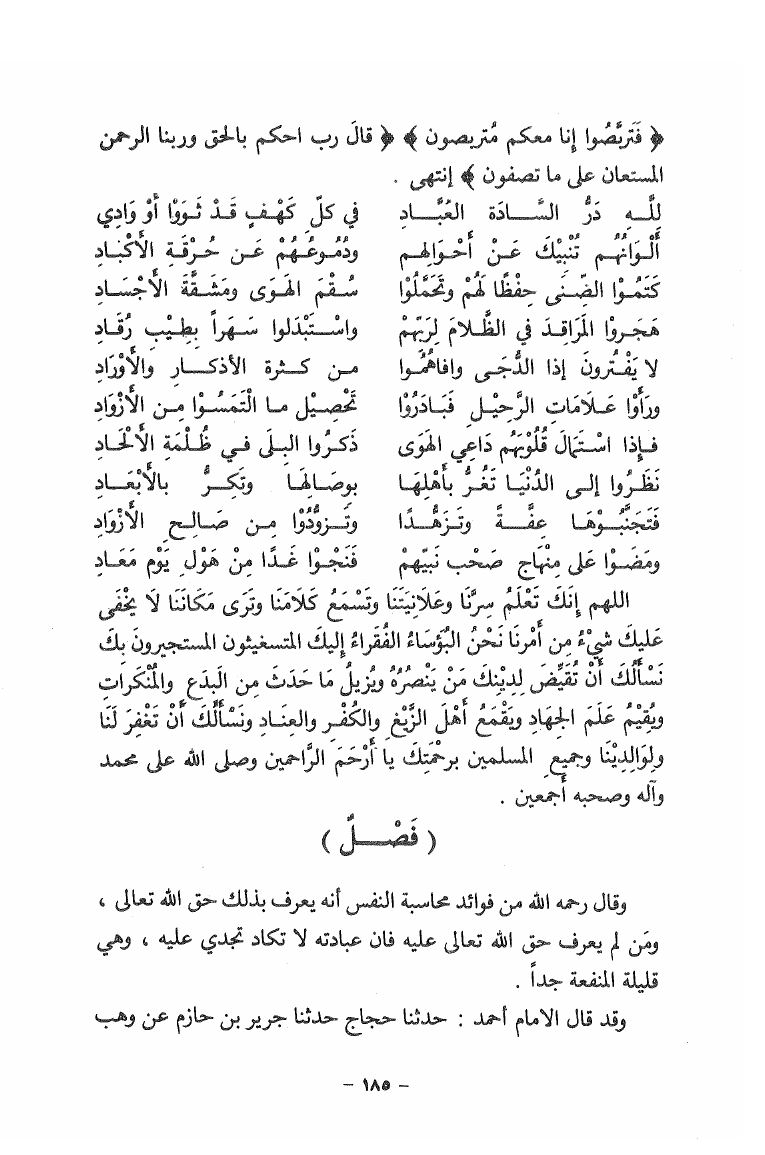 ﴿ فَتَربَّصُوا إنا معكم مُتربصون ﴾ ﴿ قالَ رب احكم بالحق وربنا الرحمن
المستعان على ما تصفون ﴾ إنتهى .
للَّـــهِ دَرُّ السَّـــادَة العُبَّـــاد في كلّ كَهْـفٍ قَـدْ ثَـوَوْا أوْ وَادِي
أَلْـوَانُهُـم تُنْبِيْكَ عَـنْ أحْـوَالِهِم ودُمُـوعُهُمْ عَـن حُـرْقَـةِ الأكْبَـادِ
كَتَمُـوْا الضِّـنَى حِفْظًا لَهُمْ وتَحَمَّلُوْا سُقْـمَ الهَـوَى ومَشَـقَّةَ الأجْسَـادِ
هَجَـرُوْا المَرَاقِـدَ في الظَّـلامَ لِرَبِّهِمْ واسْـتَبْدَلوا سَـهَراً بِطِـيْبِ رُقَـادِ
لا يَفْـتُرونَ إذا الدُّجَـى وافاهُمُـوا مـن كـثرة الأذكـــارِ والأوْرَادِ
ورَأَوْا عَـلَامَاتِ الرَّحِيْـل فَبَـادَرُوْا تَحْصِـيْل مـا الْتَمَسُـوْا مِـن الأزْوَادِ
فـإذا اسْـتَمالَ قُلُوْبَهُم دَاعِي الهَوَى ذَكَـرُوا البِـلَى فـي ظُلْمَةِ الأَلْحَـادِ
نَظَـرُوا إلـى الدُّنْيَـا تَغُرُّ بأَهْلِهَـا بوِصَـالِهَـا وتَكِـــرُّ بالأبْعَـــادِ
فَتَجَنَّبُـوْهَـا عِفَّـــةً وتَـزَهُّـدًا وتَـزَوَّدُوْا مِـن صَـالِـحِ الأزْوَادِ
ومَضَـوْا عَلى مِنْهَاجِ صَحْبِ نَبِيّهمْ فَنَجْـوْا غَـدًا مِنْ هَوْلِ يَوْم مَعَـادِ
اللهم إنَّكَ تَعْلَمُ سِرَّنَا وعَلَانِيَتَنَا وتَسْمَعُ كَلَامَنَا وتَرَى مَكَانَنَا لَا يَخْفَى
عَليكَ شَيْءُ مِن أَمْرنَا نَحْنُ البُؤَسَاءُ الفُقَراءُ إليكَ المتسغيثون المستجيرونَ بكَ
نَسْألُكَ أنْ تُقَيِّضَ لِدِيْنِكَ مَنْ يَنْصُرُهُ ويُزيلُ مَا حَدَثَ مِن البِدَعِ والمُنْكَراتِ
ويُقِيْمُ عَلَمَ الجهَادِ ويَقْمَعُ أهْلَ الزَّيْغِ والكُفْـرِ والعِنـاد ونَسْألُكَ أنْ تَغْفِرَ لَنَا
ولِوَالِدِيْنَا وجَمِيع المسلمين برحْمَتِكَ يا أرْحَمَ الرَّاحمين وصلى الله على محمد
وآله وصحبه أجمعين .
( فَصْـــلٌ )
وقال رحمه الله من فوائد محاسبة النفس أنه يعرف بذلك حق الله تعالى ،
ومَن لم يعرف حق الله تعالى عليه فان عبادته لا تكاد تجدي عليه ، وهي
قليلة المنفعة جداً .
وقد قال الامام أحمد : حدثنا حجاج حدثنا جرير بن حازم عن وهب
– ١٨٥ –